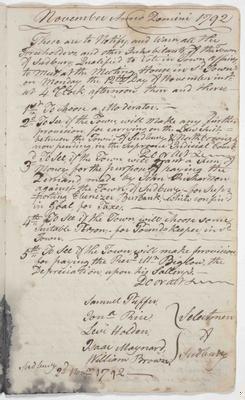 November Anno Domini 1792
These are to Notify and warn all the
Freeholders, and other Inhabitants of the Town
of Sudbury Qualified to Vote in Town affairs
to Meet at the Meeting House in sd Town
on Monday the 12th Day of November inst.
at 4 Clock afternoon then and there
1st To choose a Moderator
2d To See if the Town will make any further
provision for carrying on the Lawsuit
between the Town of Sudbury &
now pending in the Supreme Judicial Court
3d To See if the Town will grant a Sum of
Money for the purpose of paying the
Demand made by Abner
against the Town of Sudbury for Sup-
porting Ebenezer Burbank, whilst confind
in Goal for Taxes.
4th To See if the Town will choose some
Suitable Person for Poundkeeper in sd
Town.
5th To See if the Town will make provision
for paying the Revd Mr Bigelow, the
Depreciation upon his Sallery.
Samuel Puffer
Jona Rice
Levi Holden
Isaac Maynard
William Brown
Selectmen
of
Sudbury
Sudbury 2d Novr 1792